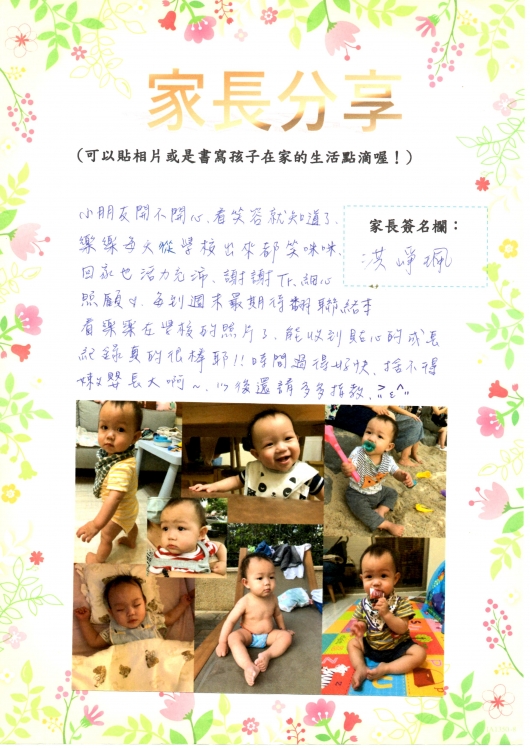 家長分享
(可以貼相片或是書寫孩子在家的生活點滴喔！)
小朋友開不開心、看笑容就知道了、
家長簽名欄：
樂樂每天從學校出來都笑咪咪、
洪崢珮
回家也活力充沛、謝謝Tr.細心
照顧、每到週末最期待翻聯絡本
看樂樂在學校的照片了、能收到貼心的成長
紀錄真的很棒耶!!時間過得好快、捨不得
嬰長大啊～、以後還請多多指教、